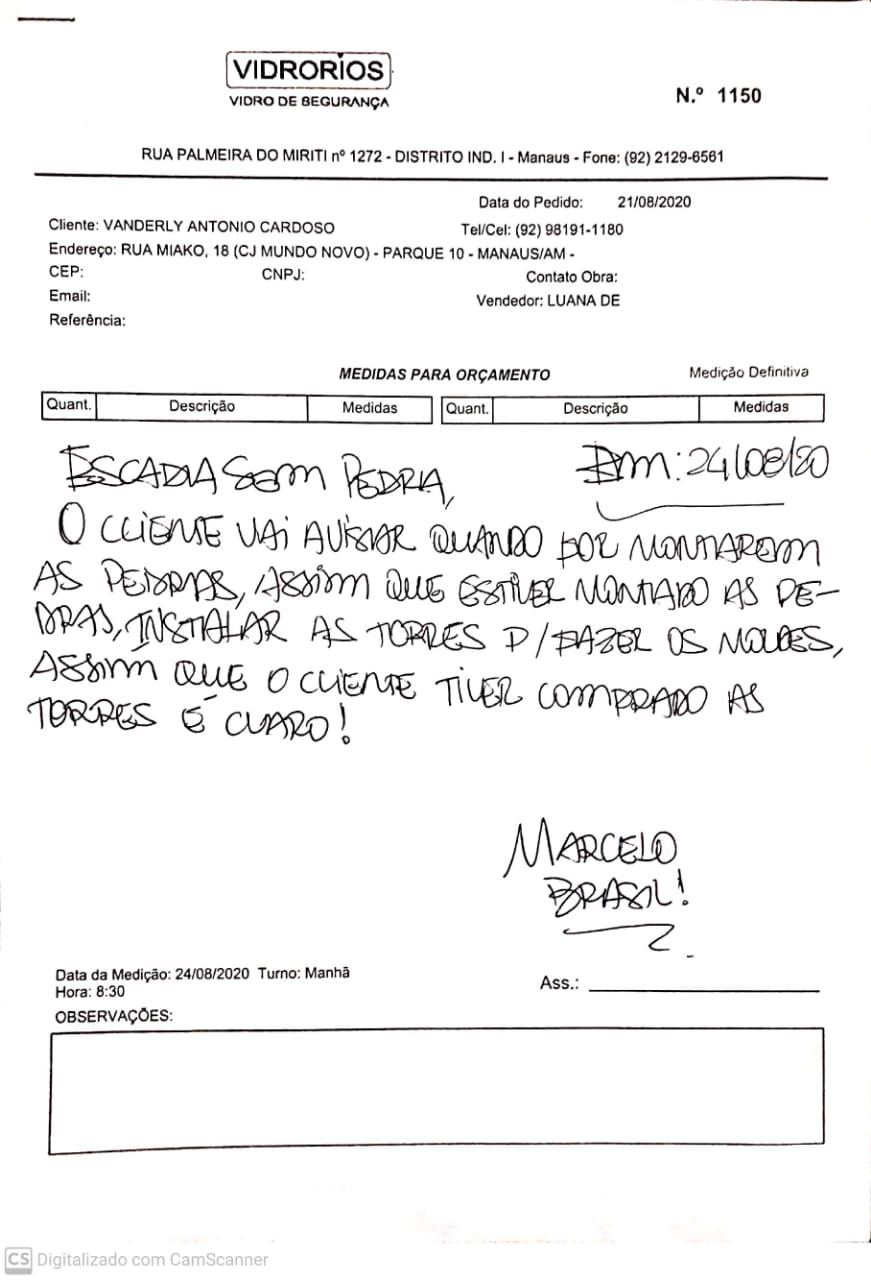 VIDRORIOS
VIDRO DE SEGURANÇA
N.º 1150
RUA PALMEIRA DO MIRITI nº 1272 - DISTRITO IND. I - Manaus - Fone: (92) 2129-6561
Data do Pedido: 21/08/2020
Cliente: VANDERLY ANTONIO CARDOSO Tel/Cel: (92) 98191-1180
Endereço: RUA MIAKO, 18 (CJ MUNDO NOVO) - PARQUE 10 - MANAUS/AM -
CEP: CNPJ: Contato Obra:
Email: Vendedor: LUANA DE
Referência:
MEDIDAS PARA ORÇAMENTO Medição Definitiva
Quant. Descrição Medidas Quant. Descrição Medidas
ESCADA SEM PEDRA, EM: 24/08/20
O CLIENTE VAI AVISAR QUANDO FOR MONTAREM
AS PEDRAS, ASSIM QUE ESTIVER MONTADO AS PE-
DRAS, INSTALAR AS TORRES P/ FAZER OS MOLDES,
ASSIM QUE O CLIENTE TIVER COMPRADO AS
TORRES É CLARO!
MARCELO
BRASIL!
Data da Medição: 24/08/2020 Turno: Manhã
Hora: 8:30
Ass.:
OBSERVAÇÕES:
CS Digitalizado com CamScanner